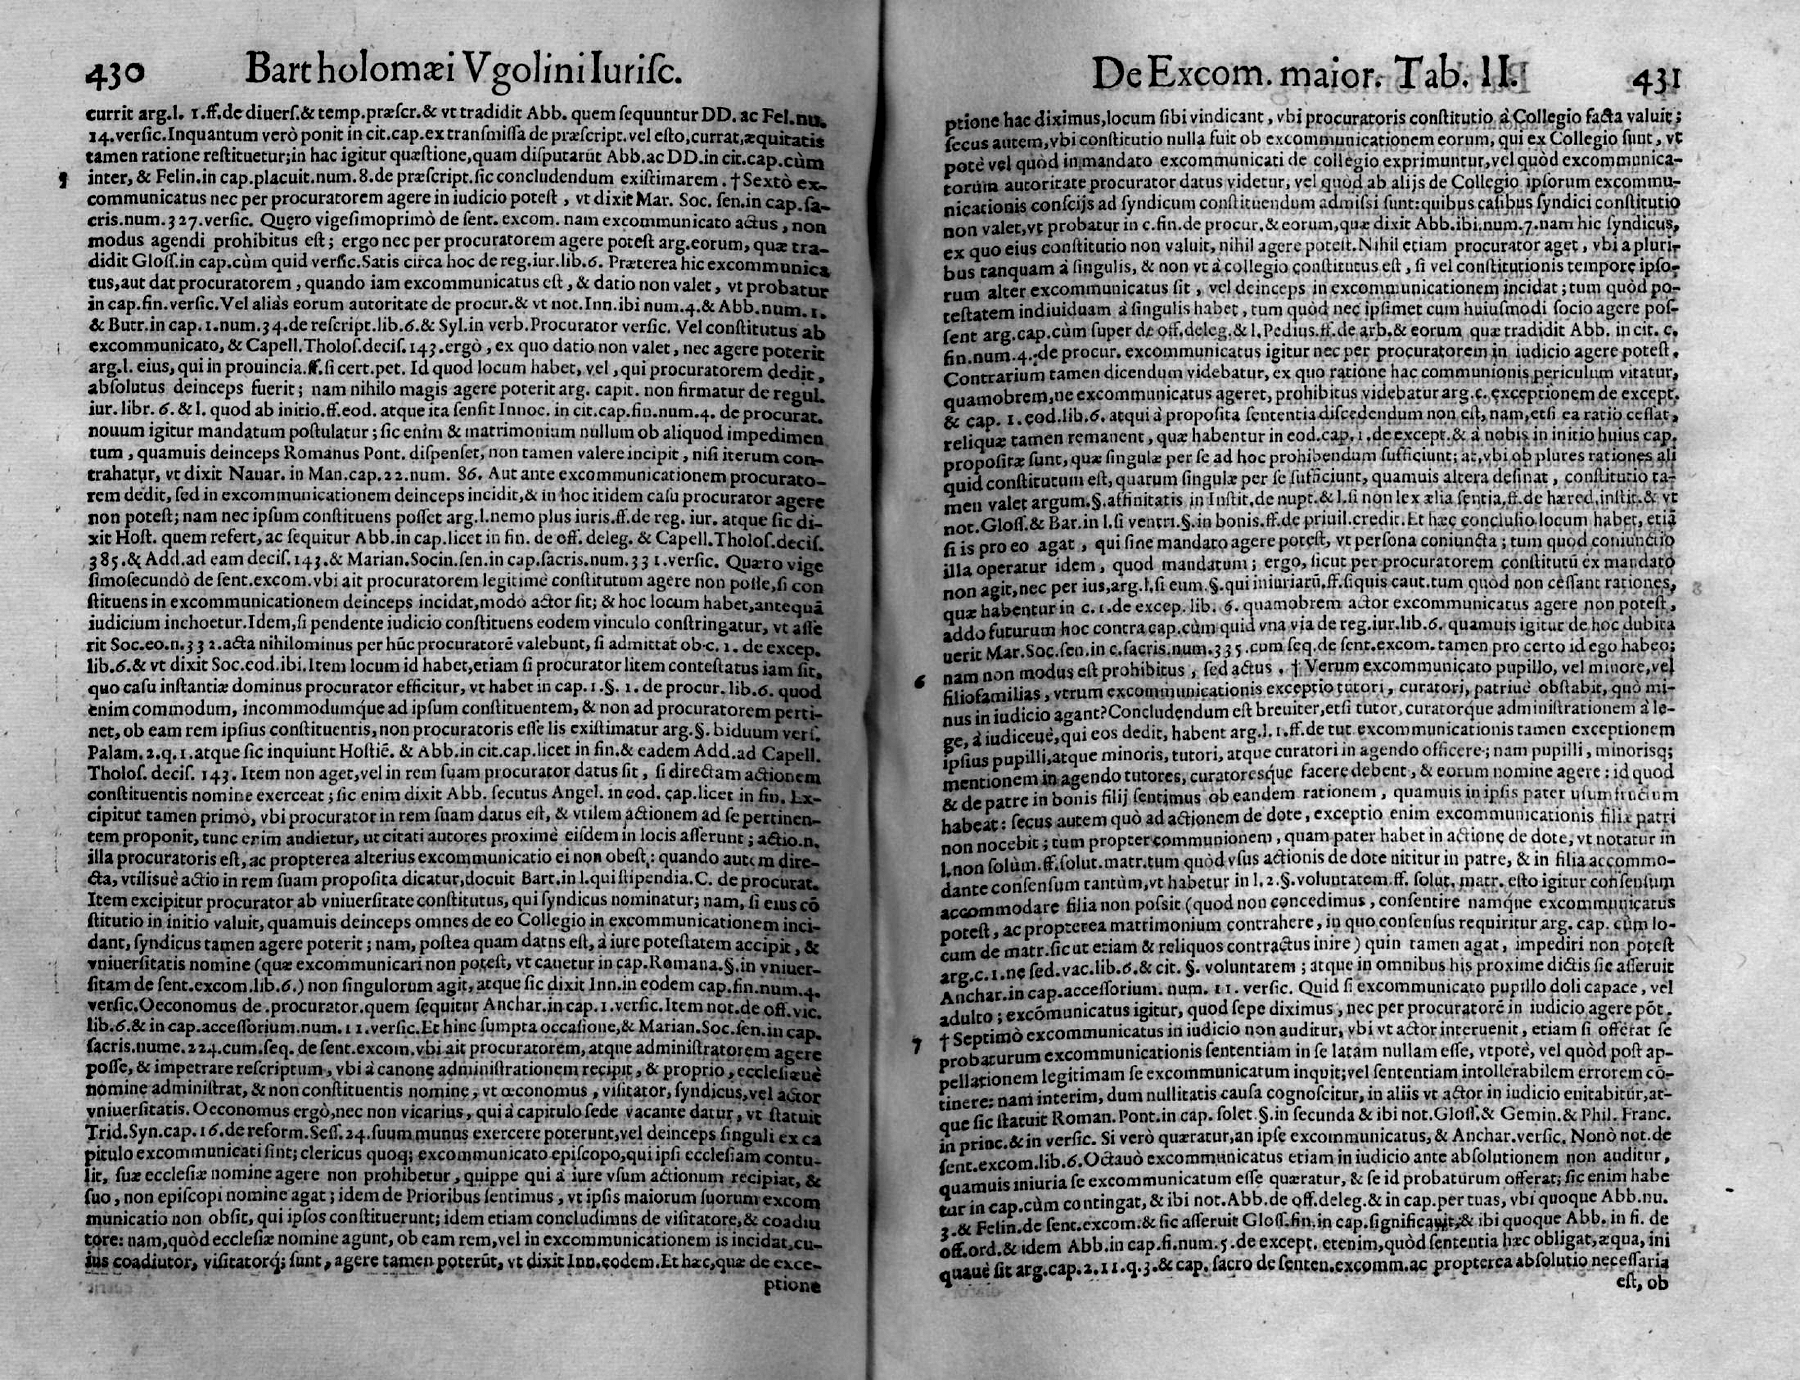 430 Bartholomæi Vgolini Iurisc.
currit arg.l. 1.ff.de diuers.& temp.præscr.& vt tradidit Abb. quem sequuntur DD. ac Fel.nu.
14.versic.Inquantum verò ponit in cit.cap.ex transmissa de præscript.vel esto,currat,æquitatis
tamen ratione restituetur;in hac igitur quæstione,quam disputarūt Abb.ac DD.in cit.cap.cùm
5 inter, & Felin.in cap.placuit.num.8.de præscript.sic concludendum existimarem . † Sextò ex-
communicatus nec per procuratorem agere in iudicio potest , vt dixit Mar. Soc. sen.in cap.sa-
cris.num.327.versic. Quęro vigesimoprimò de sent. excom. nam excommunicato actus , non
modus agendi prohibitus est ; ergo nec per procuratorem agere potest arg.eorum, quæ tra-
didit Gloss.in cap.cùm quid versic.Satis circa hoc de reg.iur.lib.6. Præterea hic excommunica
tus,aut dat procuratorem , quando iam excommunicatus est , & datio non valet , vt probatur
in cap.fin.versic.Vel aliàs eorum autoritate de procur.& vt not.Inn.ibi num.4.& Abb.num.1.
& Butr.in cap.1.num.34.de rescript.lib.6.& Syl.in verb.Procurator versic. Vel constitutus ab
excommunicato, & Capell.Tholos.decis.143.ergò , ex quo datio non valet , nec agere poterit
arg.l. eius, qui in prouincia.ff.si cert.pet. Id quod locum habet, vel , qui procuratorem dedit ,
absolutus deinceps fuerit ; nam nihilo magis agere poterit arg. capit. non firmatur de regul.
iur. libr. 6. & l. quod ab initio.ff.eod. atque ita sensit Innoc. in cit.cap.fin.num.4. de procurat.
nouum igitur mandatum postulatur ; sic enim & matrimonium nullum ob aliquod impedimen
tum , quamuis deinceps Romanus Pont. dispenset, non tamen valere incipit , nisi iterum con-
trahatur, vt dixit Nauar. in Man.cap.22.num. 86. Aut ante excommunicationem procurato-
rem dedit, sed in excommunicationem deinceps incidit,& in hoc itidem casu procurator agere
non potest; nam nec ipsum constituens posset arg.l.nemo plus iuris.ff.de reg. iur. atque sic di-
xit Host. quem refert, ac sequitur Abb.in cap.licet in fin. de off. deleg. & Capell.Tholos.decis.
385.& Add.ad eam decis.143.& Marian.Socin.sen.in cap.sacris.num.331.versic. Quæro vige
simosecundò de sent.excom.vbi ait procuratorem legitimè constitutum agere non posse,si con
stituens in excommunicationem deinceps incidat,modò actor sit; & hoc locum habet,antequā
iudicium inchoetur.Idem,si pendente iudicio constituens eodem vinculo constringatur, vt asse
rit Soc.eo.n.332.acta nihilominus per hūc procuratorē valebunt, si admittat ob c. 1. de excep.
lib.6.& vt dixit Soc.eod.ibi.Item locum id habet,etiam si procurator litem contestatus iam sit,
quo casu instantiæ dominus procurator efficitur, vt habet in cap.1.§. 1. de procur. lib.6. quod
enim commodum, incommodumq́ue ad ipsum constituentem, & non ad procuratorem perti-
net, ob eam rem ipsius constituentis, non procuratoris esse lis existimatur arg.§. biduum vers.
Palam.2.q.1.atque sic inquiunt Hostiē. & Abb.in cit.cap.licet in fin.& eadem Add.ad Capell.
Tholos. decis. 143. Item non aget,vel in rem suam procurator datus sit , si directam actionem
constituentis nomine exerceat ; sic enim dixit Abb. secutus Angel. in eod. cap.licet in fin. Ex-
cipitur tamen primò, vbi procurator in rem suam datus est, & vtilem actionem ad se pertinen-
tem proponit, tunc enim audietur, ut citati autores proximè eisdem in locis asserunt ; actio.n.
illa procuratoris est, ac propterea alterius excommunicatio ei non obest : quando autem dire-
cta, vtilisuè actio in rem suam proposita dicatur,docuit Bart.in l.qui stipendia.C. de procurat.
Item excipitur procurator ab vniuersitate constitutus, qui syndicus nominatur; nam, si eius cō
stitutio in initio valuit, quamuis deinceps omnes de eo Collegio in excommunicationem inci-
dant, syndicus tamen agere poterit ; nam, postea quam datus est, à iure potestatem accipit , &
vniuersitatis nomine (quæ excommunicari non potest, vt cauetur in cap.Romana.§.in vniuer-
sitam de sent.excom.lib.6.) non singulorum agit, atque sic dixit Inn.in eodem cap.fin.num.4.
versic.Oeconomus de procurator.quem sequitur Anchar.in cap.1.versic.Item not.de off. vic.
lib.6.& in cap.accessorium.num.11.versic.Et hinc sumpta occasione,& Marian.Soc.sen.in cap.
sacris.nume.224.cum.seq. de sent.excom.vbi ait procuratorem, atque administratorem agere
posse, & impetrare rescriptum , vbi à canone administrationem recipit , & proprio , ecclesiæuè
nomine administrat, & non constituentis nomine, vt œconomus , visitator, syndicus,vel actor
vniuersitatis. Oeconomus ergò,nec non vicarius, qui à capitulo sede vacante datur , vt statuit
Trid.Syn.cap.16.de reform.Sess.24.suum munus exercere poterunt,vel deinceps singuli ex ca
pitulo excommunicati sint; clericus quoq; excommunicato episcopo,qui ipsi ecclesiam contu-
lit, suæ ecclesiæ nomine agere non prohibetur, quippe qui à iure vsum actionum recipiat, &
suo , non episcopi nomine agat ; idem de Prioribus sentimus , vt ipsis maiorum suorum excom
municatio non obsit, qui ipsos constituerunt; idem etiam concludimus de visitatore,& coadiu
tore: nam,quòd ecclesiæ nomine agunt, ob eam rem,vel in excommunicationem is incidat,cu-
ius coadiutor, visitatorq́; sunt, agere tamen poterūt, vt dixit Inn.eodem.Et hæc,quæ de exce-
ptione
De Excom. maior. Tab. II. 431
ptione hac diximus,locum sibi vindicant , vbi procuratoris constitutio à Collegio facta valuit ;
secus autem,vbi constitutio nulla fuit ob excommunicationem eorum, qui ex Collegio sunt , vt
potè vel quòd in mandato excommunicati de collegio exprimuntur,vel quòd excommunica-
torum autoritate procurator datus videtur, vel quòd ab alijs de Collegio ipsorum excommu-
nicationis conscijs ad syndicum constituendum admissi sunt:quibus casibus syndici constitutio
non valet,vt probatur in c.fin.de procur.& eorum,quæ dixit Abb.ibi.num.7.nam hic syndicus,
ex quo eius constitutio non valuit, nihil agere potest.Nihil etiam procurator aget , vbi a pluri-
bus tanquam à singulis, & non vt à collegio constitutus est , si vel constitutionis tempore ipso-
rum alter excommunicatus sit , vel deinceps in excommunicationem incidat ; tum quòd po-
testatem indiuiduam à singulis habet , tum quòd nec ipsimet cum huiusmodi socio agere pos-
sent arg.cap.cùm super de off.deleg.& l.Pedius.ff.de arb.& eorum quæ tradidit Abb. in cit. c.
fin.num.4.de procur. excommunicatus igitur nec per procuratorem in iudicio agere potest.
Contrarium tamen dicendum videbatur, ex quo ratione hac communionis periculum vitatur,
quamobrem,ne excommunicatus ageret, prohibitus videbatur arg.c.exceptionem de except.
& cap. 1.eod.lib.6. atqui à proposita sententia discedendum non est, nam, etsi ea ratio cessat,
reliquæ tamen remanent , quæ habentur in eod.cap.1.de except.& à nobis in initio huius cap.
propositæ sunt, quæ singulæ per se ad hoc prohibendum sufficiunt; at,vbi ob plures rationes ali
quid constitutum est, quarum singulæ per se sufficiunt, quamuis altera desinat , constitutio ta-
men valet argum.§.affinitatis in Instit.de nupt.& l.si non lex ælia sentia,ff.de hæred.instit.& vt
not.Gloss.& Bar.in l.si ventri.§.in bonis.ff.de priuil.credit.Et hæc conclusio locum habet, etiā
si is pro eo agat , qui sine mandato agere potest, vt persona coniuncta ; tum quòd coniunctio
illa operatur idem , quod mandatum ; ergo, sicut per procuratorem constitutū ex mandato
non agit,nec per ius,arg.l.si eum.§.qui iniuriarū.ff.siquis caut.tum quòd non cessant rationes,
quæ habentur in c. 1.de excep. lib. 6. quamobrem actor excommunicatus agere non potest ,
addo futurum hoc contra cap.cùm quid vna via de reg.iur.lib.6. quamuis igitur de hoc dubita
uerit Mar.Soc.sen.in c.sacris.num.335.cum seq.de sent.excom. tamen pro certo id ego habeo;
nam non modus est prohibitus , sed actus . † Verum excommunicato pupillo, vel minore,vel
6 filiofamilias , vtrum excommunicationis exceptio tutori , curatori, patriuè obstabit, quò mi-
nus in iudicio agant?Concludendum est breuiter,etsi tutor, curatorq́ue administrationem à le-
ge, à iudiceuè,qui eos dedit, habent arg.l. 1.ff.de tut.excommunicationis tamen exceptionem
ipsius pupilli,atque minoris, tutori, atque curatori in agendo officere; nam pupilli, minorisq;
mentionem in agendo tutores, curatoresque facere debent , & eorum nomine agere : id quod
& de patre in bonis filij sentimus ob eandem rationem , quamuis in ipsis pater usumfructum
habeat: secus autem quò ad actionem de dote, exceptio enim excommunicationis filiæ patri
non nocebit ; tum propter communionem , quam pater habet in actione de dote, vt notatur in
l.non solùm.ff.solut.matr.tum quòd vsus actionis de dote nititur in patre, & in filia accommo-
dante consensum tantùm,vt habetur in l.2.§.voluntatem.ff. solut. matr. esto igitur consensum
accommodare filia non possit (quod non concedimus , consentire namque excommunicatus
potest, ac propterea matrimonium contrahere, in quo consensus requiritur arg. cap. cùm lo-
cum de matr.sicut etiam & reliquos contractus inire) quin tamen agat, impediri non potest
arg.c.1.ne sed.vac.lib.6.& cit. §. voluntatem ; atque in omnibus his proximè dictis sic asseruit
Anchar.in cap.accessorium. num. 11. versic. Quid si excommunicato pupillo doli capace , vel
adulto ; excōmunicatus igitur, quod sepe diximus , nec per procuratorē in iudicio agere pōt.
7 † Septimò excommunicatus in iudicio non auditur, vbi vt actor interuenit , etiam si offerat se
probaturum excommunicationis sententiam in se latam nullam esse, vtpotè, vel quòd post ap-
pellationem legitimam se excommunicatum inquit;vel sententiam intollerabilem errorem cō-
tinere; nam interim, dum nullitatis causa cognoscitur, in aliis vt actor in iudicio euitabitur,at-
que sic statuit Roman. Pont.in cap. solet.§.in secunda & ibi not.Gloss.& Gemin.& Phil. Franc.
in princ.& in versic. Si verò quæratur,an ipse excommunicatus, & Anchar.versic. Nonò not.de
sent.excom.lib.6.Octauò excommunicatus etiam in iudicio ante absolutionem non auditur ,
quamuis iniuria se excommunicatum esse quæratur, & se id probaturum offerat; sic enim habe
tur in cap.cùm contingat, & ibi not.Abb.de off.deleg.& in cap.per tuas, vbi quoque Abb.nu.
3.& Felin.de sent.excom.& sic asseruit Gloss.fin.in cap.significauit,& ibi quoque Abb. in fi. de
off.ord.& idem Abb.in cap.fi.num.5.de except. etenim,quòd sententia hæc obligat,æqua, ini
quauè sit arg.cap.2.11.q.3.& cap. sacro de senten.excomm.ac propterea absolutio necessaria
est, ob